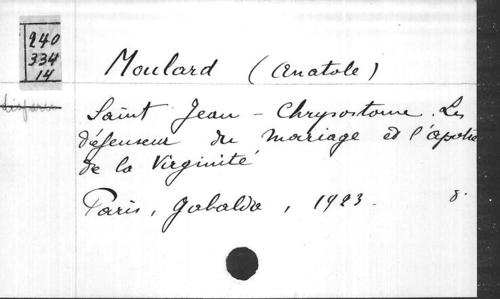 240
334
14
Moulard (Anatole)
Saint Jean - Chrysostome. Le
défenseur du mariage et l'apotre
de la Virginité
Paris, Gabalda, 1923. 8.